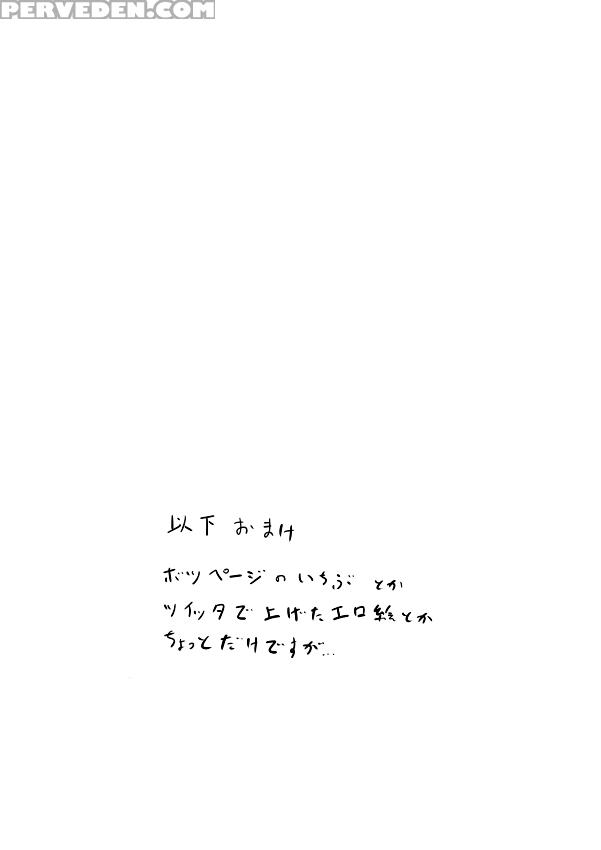 PERVEDEN.COM
以下 おまけ
ボツページのいちぶ とか
ツイッタで上げたエロ絵とか
ちょっとだけですが…